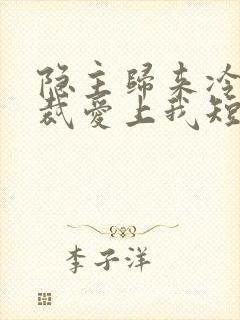 隐主歸来冷
裁愛上我短
李子洋